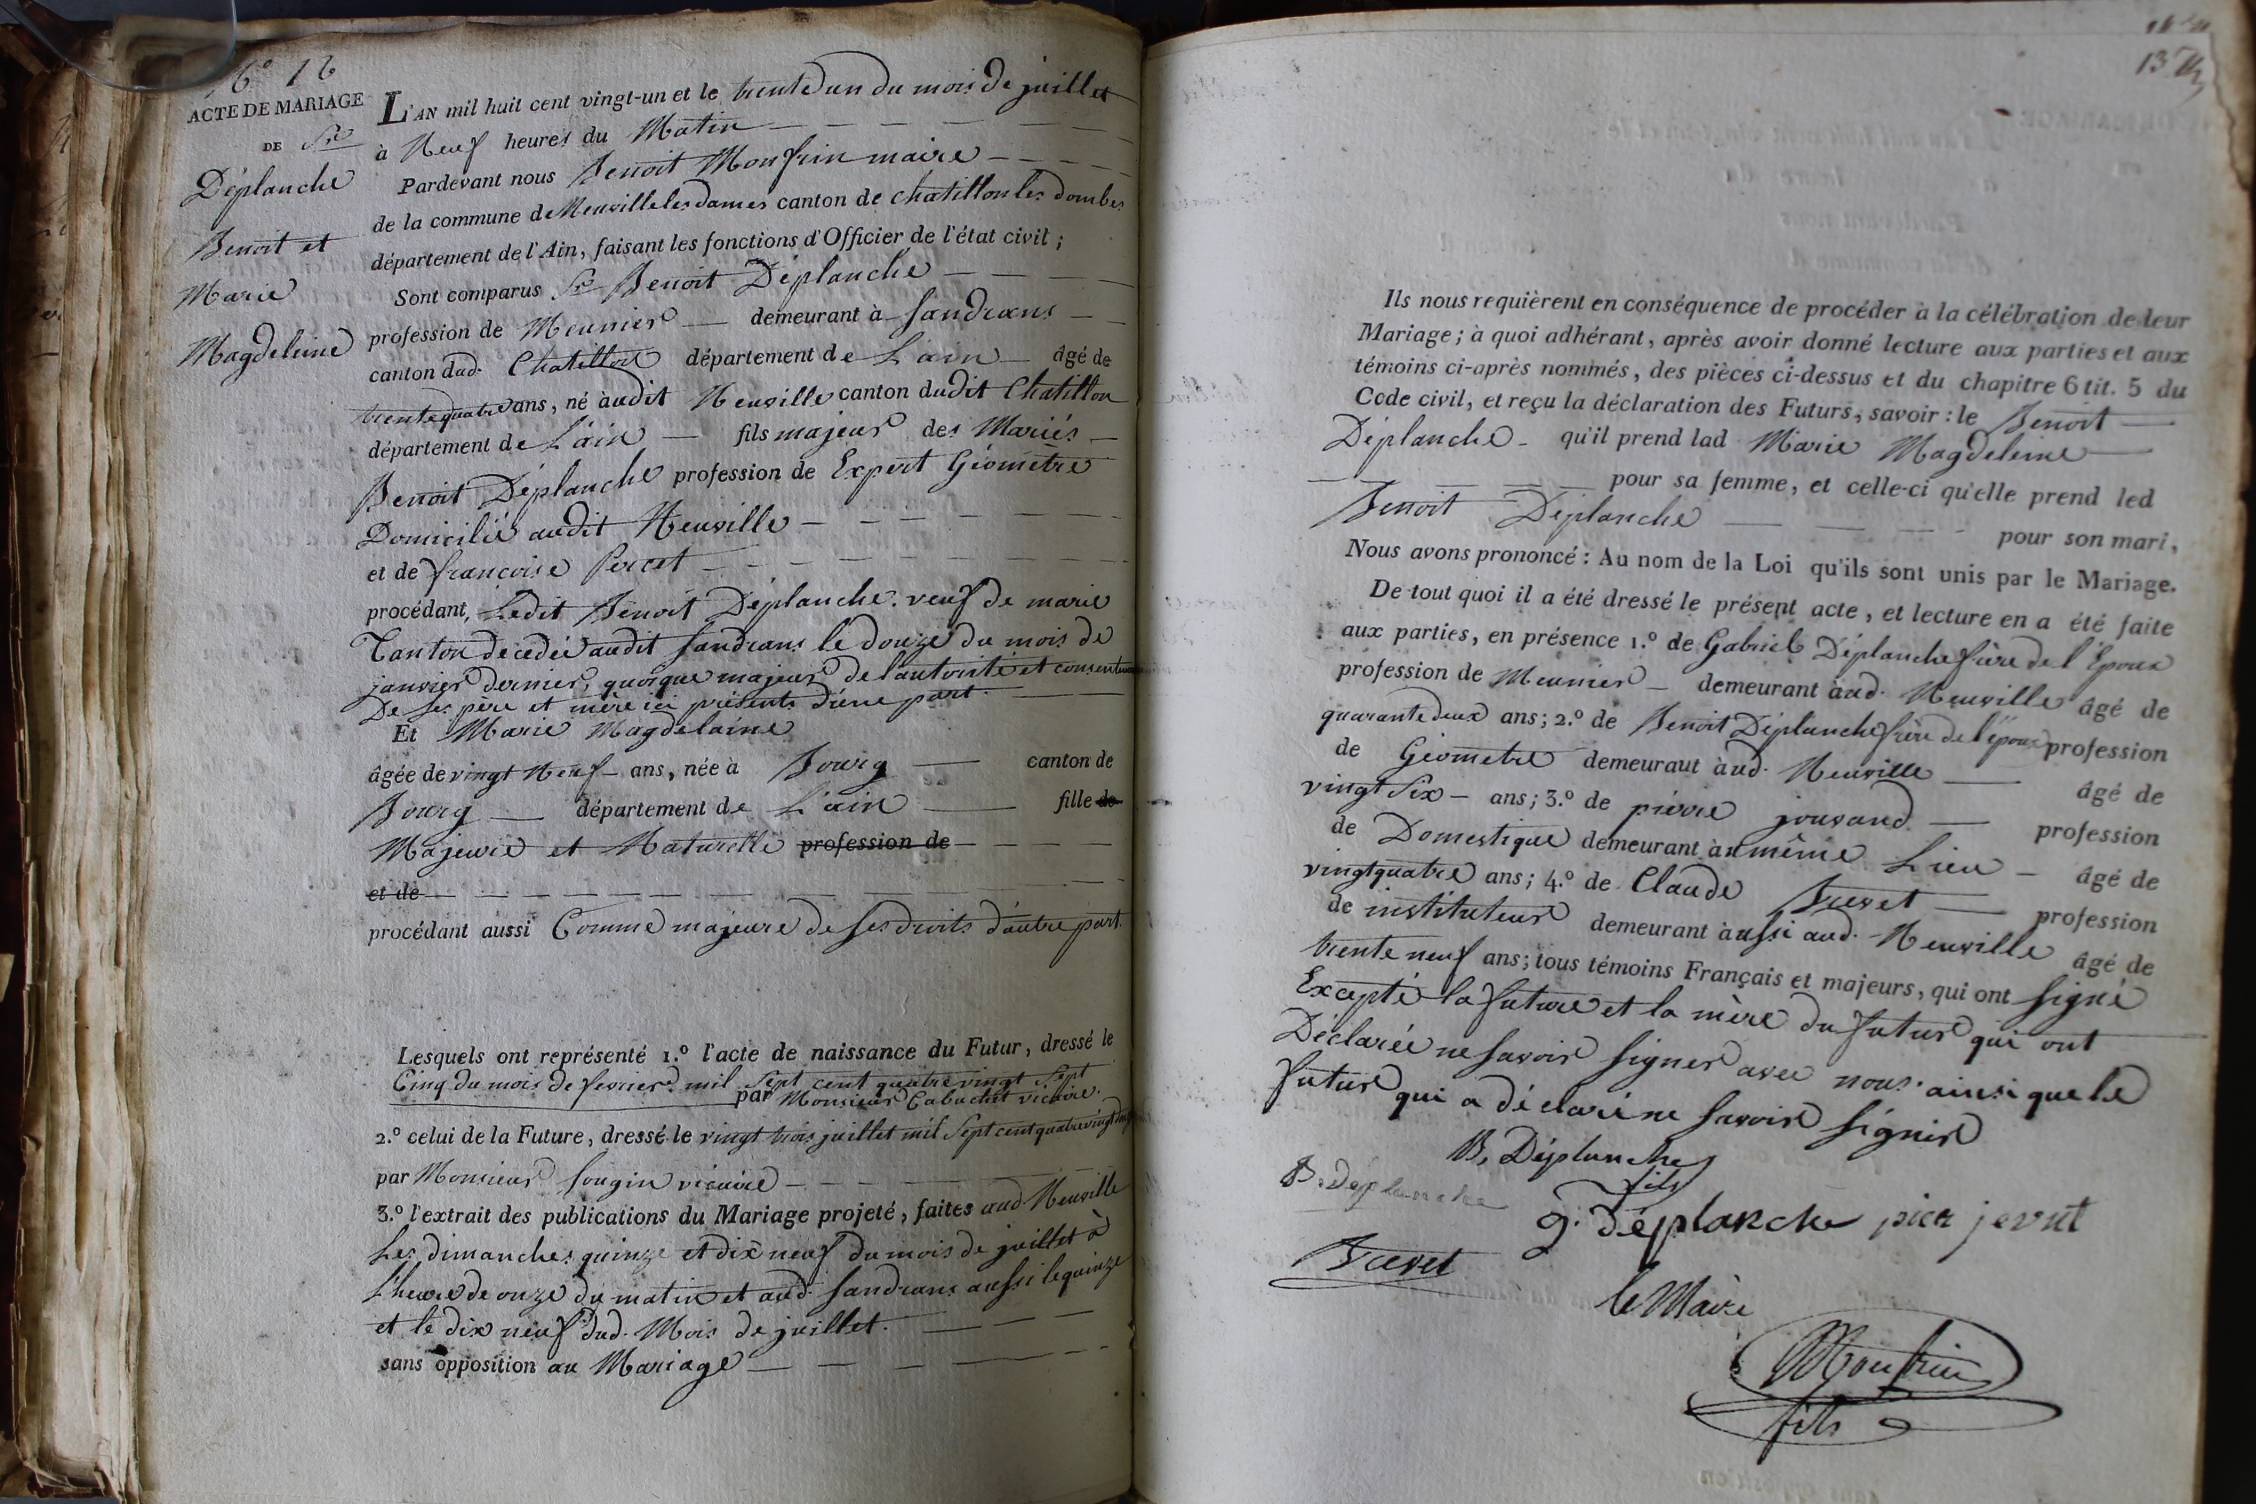 N° 16
ACTE DE MARIAGE
DE Sr
Déplanche
Benoit et
Marie
Magdeleine
L'AN mil huit cent vingt-un et le trente un du mois de juillet
à Neuf heures du Matin
Pardevant nous Benoit Monfrin maire
de la commune de Neuville les dames canton de chatillon les dombes
département de l'Ain, faisant les fonctions d'Officier de l'état civil;
Sont comparus Sr Benoit Déplanche
profession de Meunier demeurant à Sandrans
canton dud. Chatillon département de L'ain âgé de
trente quatre ans, né audit Neuville canton dudit Chatillon
département de L'ain fils majeur des Mariés
Benoit Déplanche profession de Expert Géometre
Domicilié audit Neuville
et de francoise Percet
procédant, Ledit Benoit Déplanche. veuf de marie
Tanton décédée audit Sandrans le douze du mois de
janvier dernier, quoique majeur de l'autorité et consentement
De ses père et mère ici présents d'une part.
Et Marie Magdelaine
âgée de vingt Neuf ans, née à Bourg canton de
Bourg département de L'ain fille de
Majeure et Naturelle profession de
et de
procédant aussi Comme majeure de ses droits d'autre part.
Lesquels ont représenté 1.° l'acte de naissance du Futur, dressé le
Cinq du mois de fevrier mil sept cent quatre vingt sept
par Monsieur Cabuchet vicaire.
2.° celui de la Future, dressé le vingt trois juillet mil sept cent quatre vingt
par Monsieur Sougin vicaire
3.° l'extrait des publications du Mariage projeté, faites aud. Neuville
Les dimanches quinze et dix neuf du mois de juillet à
L'heure de onze du matin et aud. Sandrans aussi le quinze
et le dix neuf dud. Mois de juillet.
sans opposition au Mariage
13
Ils nous requièrent en conséquence de procéder à la célébration de leur
Mariage; à quoi adhérant, après avoir donné lecture aux parties et aux
témoins ci-après nommés, des pièces ci-dessus et du chapitre 6 tit. 5 du
Code civil, et reçu la déclaration des Futurs, savoir: le Benoit
Déplanche qu'il prend lad Marie Magdeleine
pour sa femme, et celle-ci qu'elle prend led
Benoit Déplanche pour son mari,
Nous avons prononcé: Au nom de la Loi qu'ils sont unis par le Mariage.
De tout quoi il a été dressé le présent acte, et lecture en a été faite
aux parties, en présence 1.° de Gabriel Déplanche frère de l'Epoux
profession de Meunier demeurant aud. Neuville âgé de
quarante deux ans; 2.° de Benoit Déplanche frère de l'époux profession
de Géometre demeurant aud. Neuville âgé de
vingt Six ans; 3.° de pierre jouvand profession
de Domestique demeurant au même Lieu âgé de
vingt quatre ans; 4.° de Claude Brevet profession
de instituteur demeurant aussi aud. Neuville âgé de
trente neuf ans; tous témoins Français et majeurs, qui ont signé
Excepté la future et la mère du futur qui ont
Déclarée ne savoir signer avec nous. ainsi que le
futur qui a déclaré ne savoir signer
B, Déplanche
fils
B. Déplanche
g. Déplanche pier jevut
Brevet
le Maire
Monfrin
fils